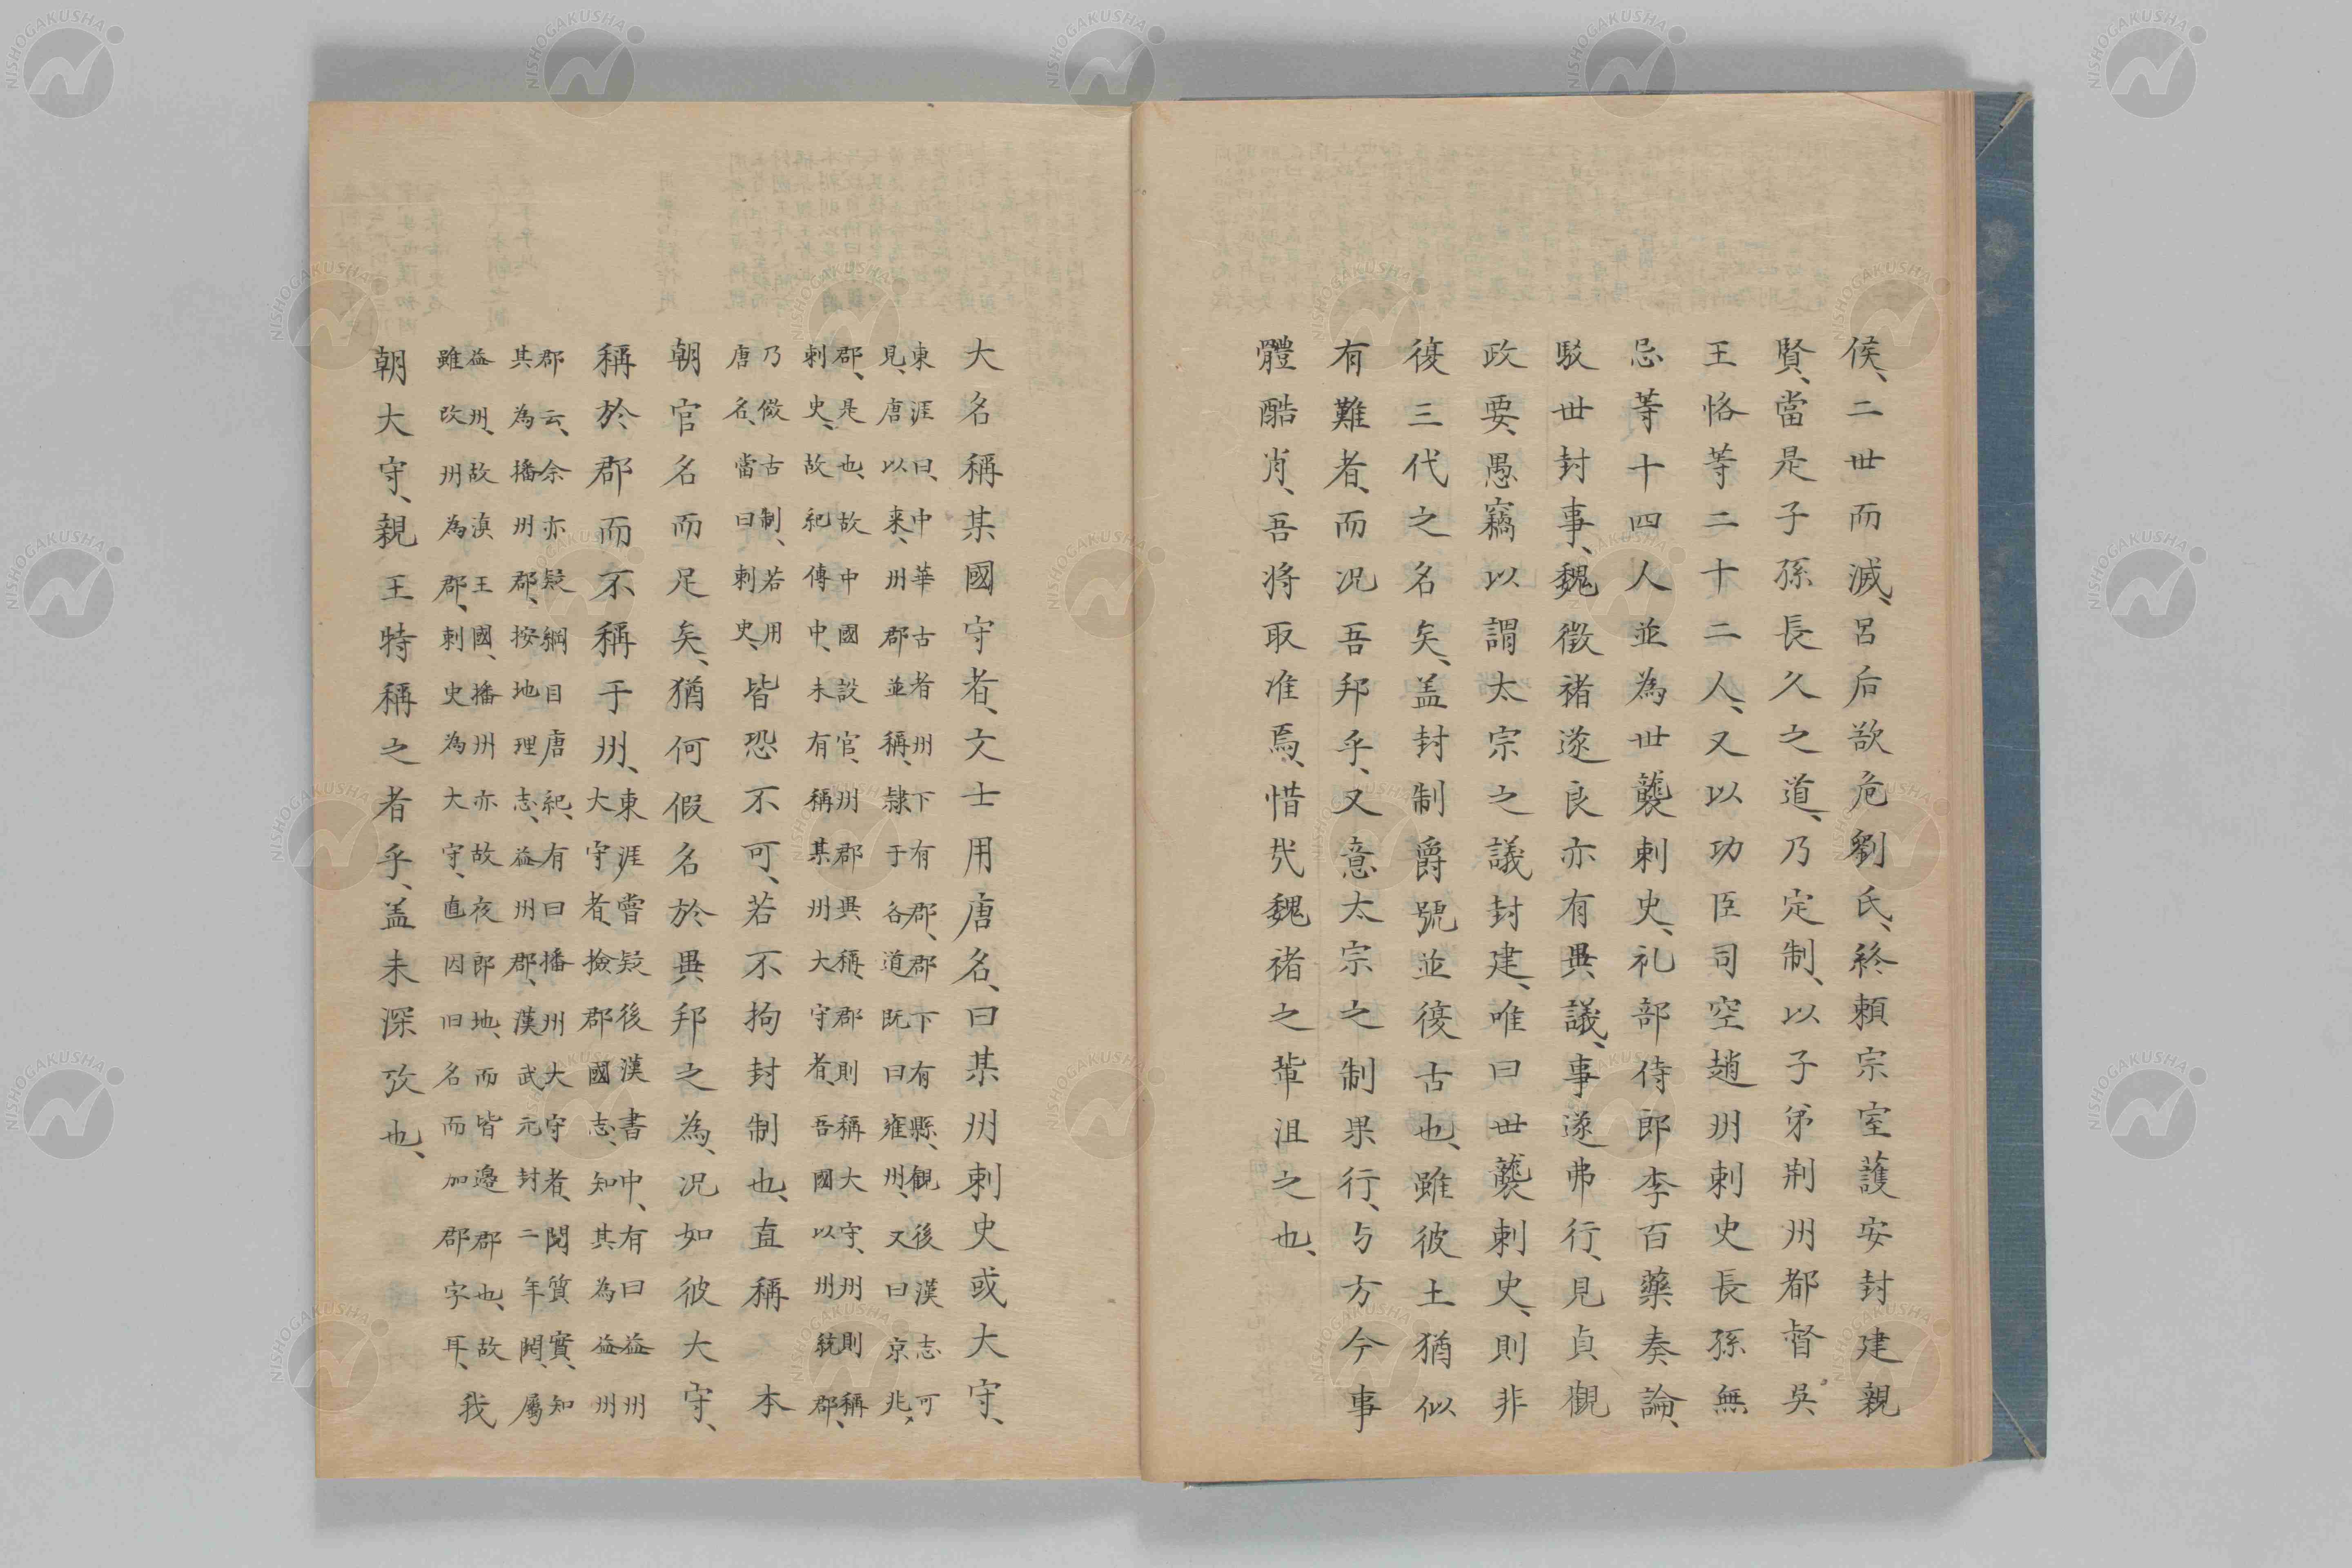 侯、二世而滅、呂后欲危劉氏、終頼宗室護安封建親
賢、當是子孫長久之道、乃定制、以子弟荆州都督吳
王恪等二十二人、又以功臣司空趙州刺史長孫無
忌等十四人並為世襲刺史、礼部侍郎李百藥奏論、
駁世封事、魏徵褚遂良亦有異議、事遂弗行、見貞觀
政要、愚竊以謂太宗之議封建、唯曰世襲刺史、則非
復三代之名矣、盖封制爵號並復古也、雖彼土猶似
有難者、而况吾邦乎、又意太宗之制果行、与方今事
體酷肖、吾将取准焉、惜哉魏褚之輩沮之也、
大名稱某國守者、文士用唐名、曰某州刺史或大守、
東涯曰、中華古者州下有郡、郡下有縣、觀後漢志可
見、唐以来、州郡並稱、隷于各道既曰雍州、又曰京兆、
郡、是也、故中國設官、州郡異稱、郡則稱大守、州則稱
刺史、故紀傳中、未有稱某州大守者、吾國以州統郡、
乃倣古制、若用
唐名、當曰刺史、皆恐不可、若不拘封制也、直稱 本
朝官名而足矣、猶何假名於異邦之為、况如彼大守、
稱於郡而不稱于州、東涯嘗疑後漢書中、有曰益州
大守者、撿郡國志、知其為益州
郡云、余亦疑綱目唐紀、有曰播州大守者、閲質實、知
其為播州郡、按地理志、益州郡、漢武元封二年開、屬
益州、故滇王國、播州亦故夜郎地、而皆邊郡也、故
雖改州為郡、刺史為大守、直因旧名而加郡字耳、我
朝大守、親王特稱之者乎、盖未深攷也、